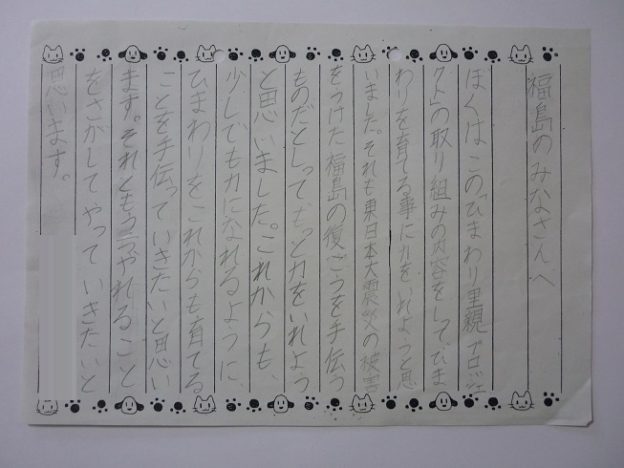 福島のみなさんへ
ぼくはこの「ひまわり里親プロジェ
クト」の取り組みの内容をしってひま
わりを育てる事に力をいれようと思
いました。それも東日本大震災の被害
をうけた福島の復こうを手伝う
ものだとしってもっと力をいれよう
と思いました。これからも、
少しでも力になれるように、
ひまわりをこれからも育てる
ことを手伝っていきたいと思い
ます。それともうやれること
をさがしてやっていきたいと
思います。